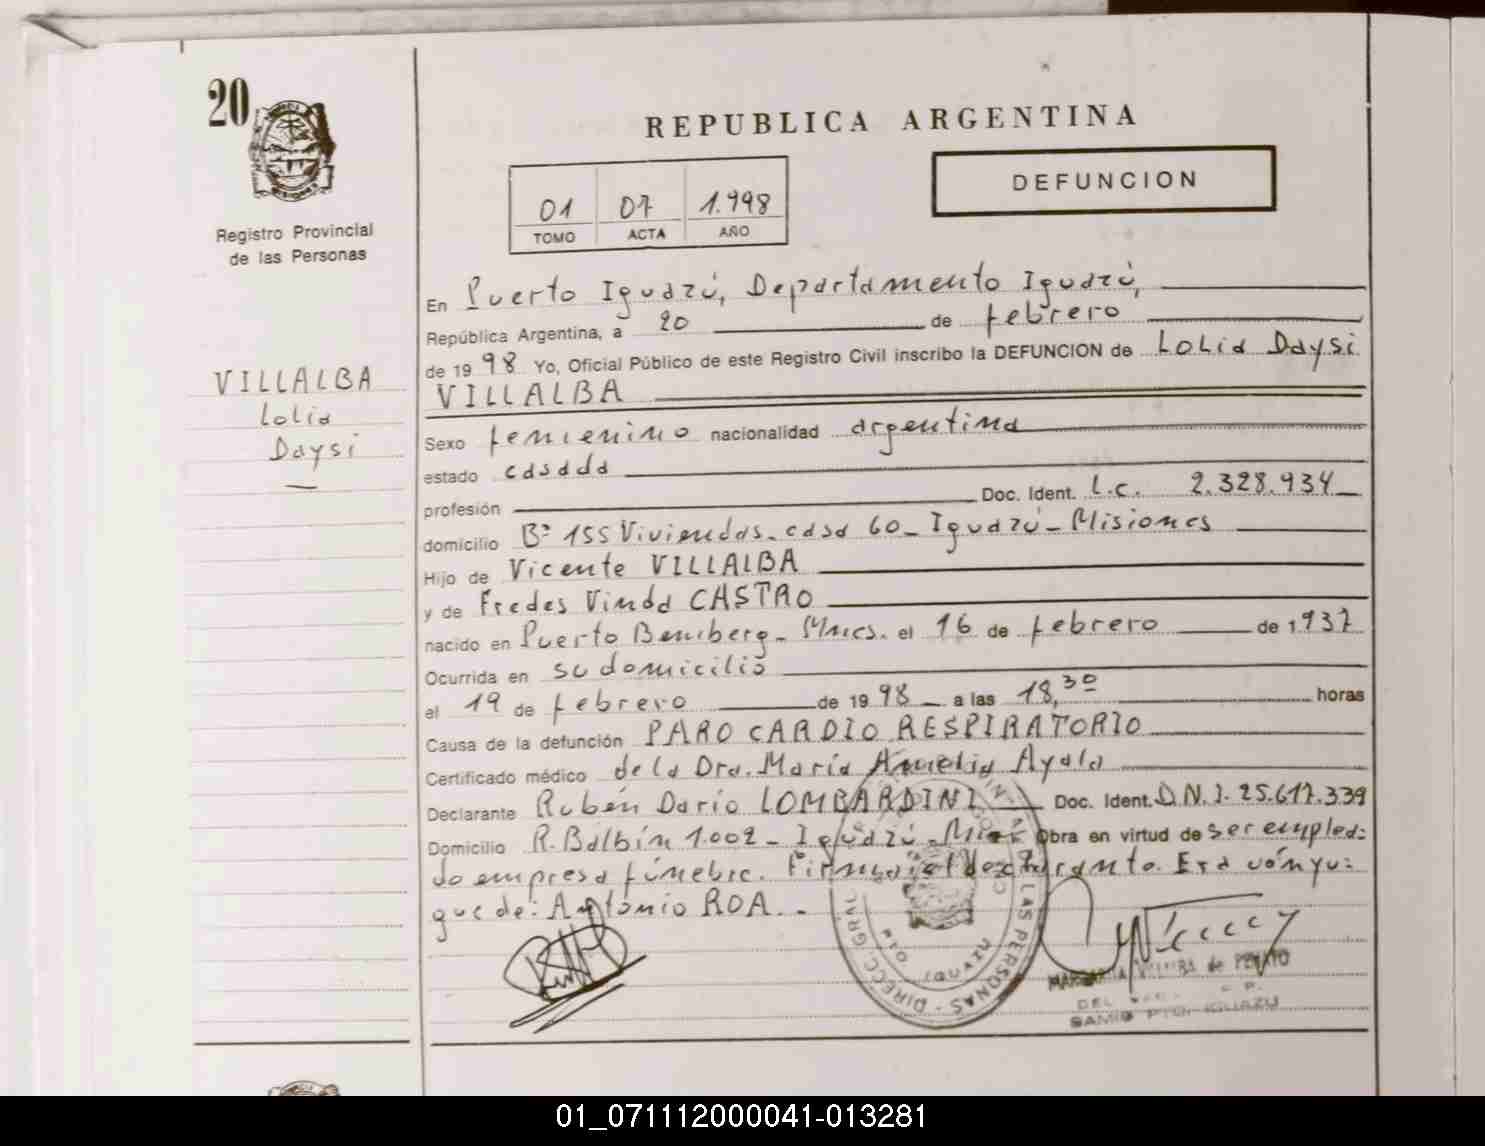 20
Registro Provincial
de las Personas
VILLALBA
Lolia
Daysi
REPUBLICA ARGENTINA
DEFUNCION
01 07 1.998
TOMO ACTA AÑO
En Puerto Iguazú, Departamento Iguazú,
República Argentina, a 20 de febrero
de 1998 Yo, Oficial Público de este Registro Civil inscribo la DEFUNCION de Lolia Daysi
VILLALBA
Sexo femenino nacionalidad argentina
estado casada
profesión Doc. Ident. L.C. 2.328.934
domicilio Bº 155 Viviendas. casa 60_ Iguazú_ Misiones
Hijo de Vicente VILLALBA
y de Fredes Vinda CASTRO
nacido en Puerto Bemberg_ Mnes. el 16 de febrero de 1.937
Ocurrida en su domicilio
el 19 de febrero de 1998 a las 18,30 horas
Causa de la defunción PARO CARDIO RESPIRATORIO
Certificado médico de la Dra. María Amelia Ayala
Declarante Rubén Darío LOMBARDINI Doc. Ident. D.N.I. 25.617.339
Domicilio R. Balbín 1.002_ Iguazú_ Mnes Obra en virtud de ser emplea-
do empresa fúnebre. Firma el declarante. Era cónyu-
gue de: Antonio ROA._
DIRECC. GRAL. LAS PERSONAS
PTO IGUAZU
MARGARITA de
SAMIC PTO. IGUAZU
01_071112000041-013281